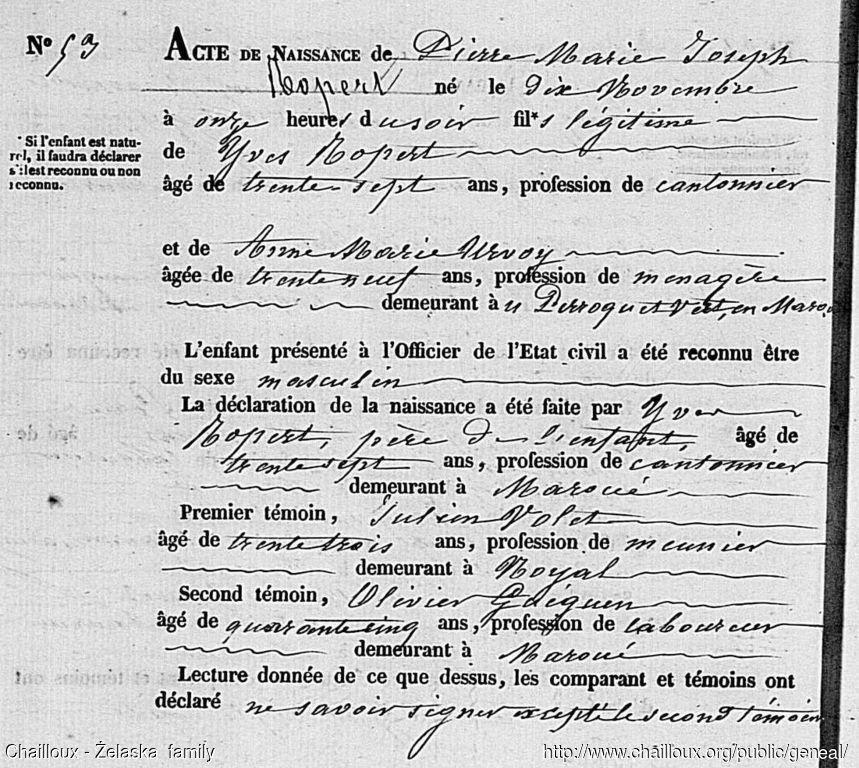 N° 53
ACTE DE NAISSANCE de Pierre Marie Joseph
Ropert né le dix Novembre
à onze heures du soir fil*s légitime
*Si l'enfant est natu-
rel, il faudra déclarer
s'il est reconnu ou non
reconnu.
de Yves Ropert
âgé de trente-sept ans, profession de cantonnier
et de Anne Marie Urvoy
âgée de trente neuf ans, profession de menagère
demeurant à u Perroquet Vert, en Maroué
L'enfant présenté à l'Officier de l'Etat civil a été reconnu être
du sexe masculin
La déclaration de la naissance a été faite par Yves
Ropert, père de l'enfant, âgé de
trente sept ans, profession de cantonnier
demeurant à Maroué
Premier témoin, Julien Volet
âgé de trente trois ans, profession de meunier
demeurant à Noyal
Second témoin, Olivier Guéguen
âgé de quarante cinq ans, profession de laboureur
demeurant à Maroué
Lecture donnée de ce que dessus, les comparant et témoins ont
déclaré ne savoir signer excepté le second témoin
Chailloux - Żelaska family
http://www.chailloux.org/public/geneal/